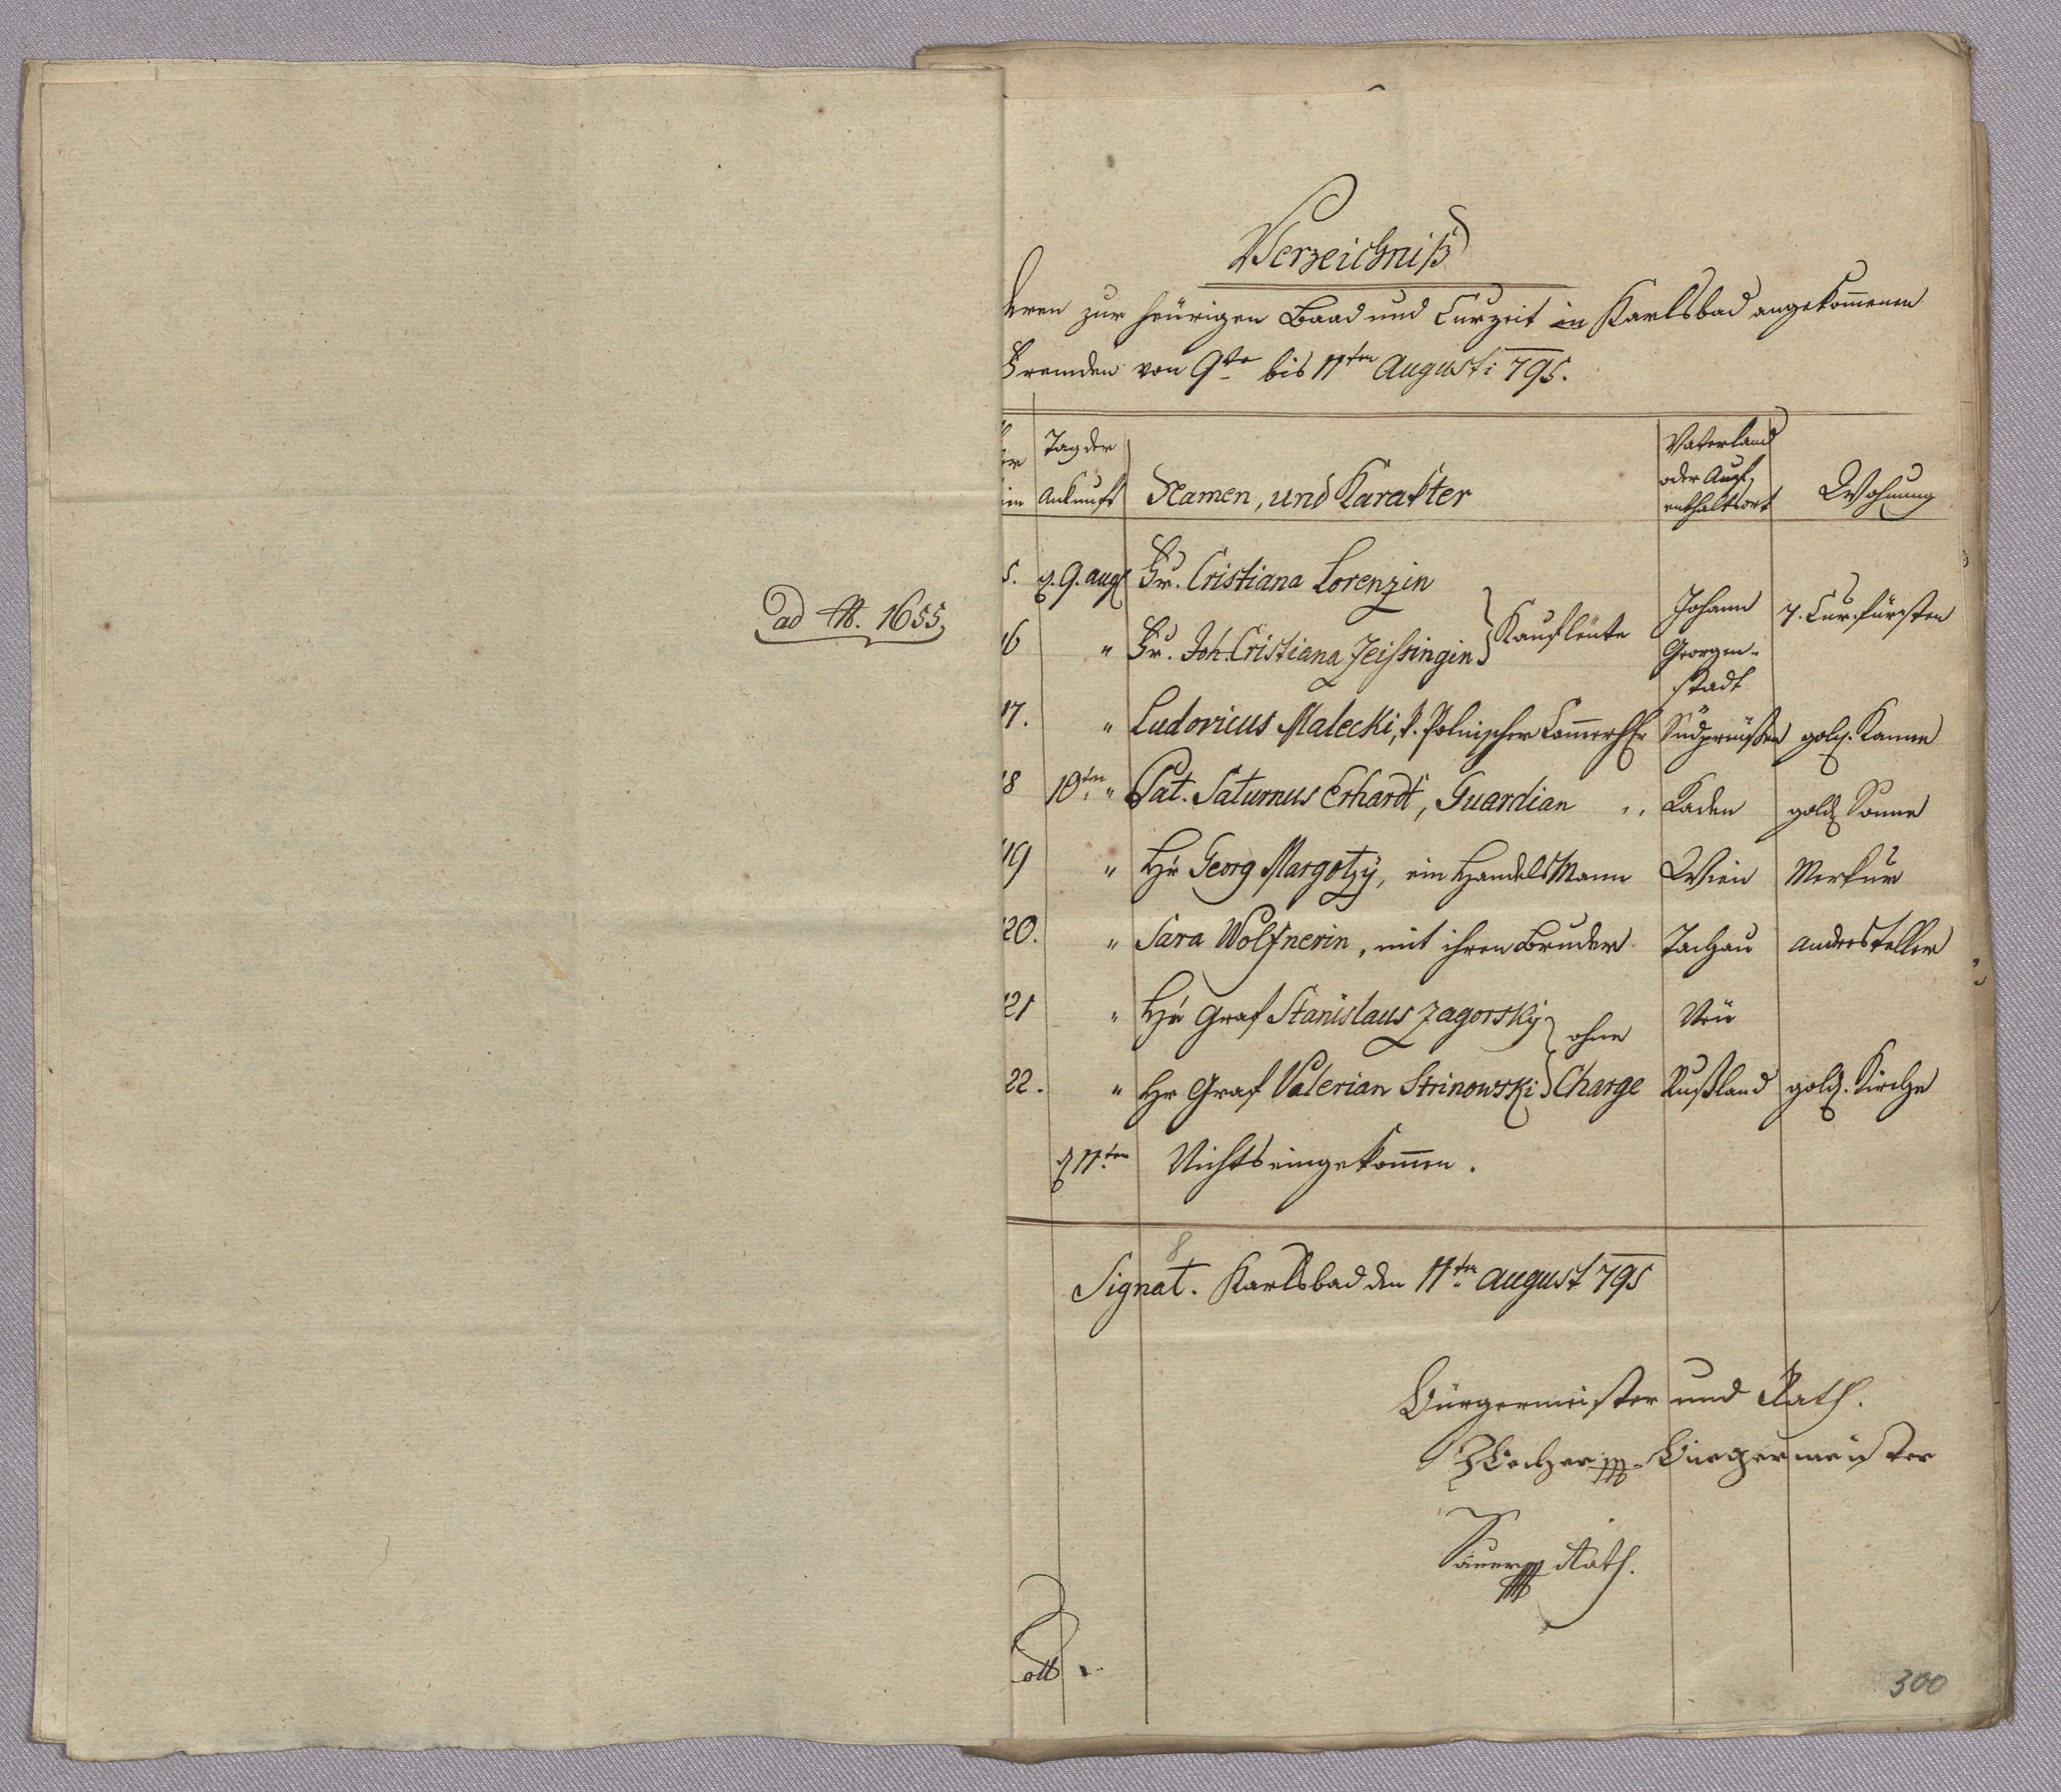 ad N. 1655.
Verzeichniß
deren zur heürigen Baad und Curzeit in Karlsbad angekom̄enen
Fremden von 9te bis 11ten Augusti 795.
Tag der
Ankunft
Namen, und Karakter
Vaterland
oder Auf,
enthaltsort
Wohnung
5. d. 9. aug Fr. Cristiana Lorenzin
16 " Fr. Joh. Cristiana Zeissingin } Kaufleüte Johann Georgen-stadt 7. Curfürsten
17. " Ludovicus Malecki, k. Polnischer Cam̄erhh Südpreüßen gold. Kanne
18 10ten " Pat. Saturnus Erhardt, Guardian " Kaden gold Sonne
19 " Hr Georg Margotzÿ, ein Handels Mann Wien Merkur
20. " Sara Wolfnerin, mit ihren Bruder Tachau
21 " Hr Graf Stanislaus Zagorskÿ } ohne Neü
22. " Hr Graf Valerian Strinowski } Charge Rußland gold. Kirche
d 11ten Nichts eingekom̄en.
8
Signat. Karlsbad den 11ten august 795
Bürgermeister und Rath.
Bürgermeister
Rath.
300